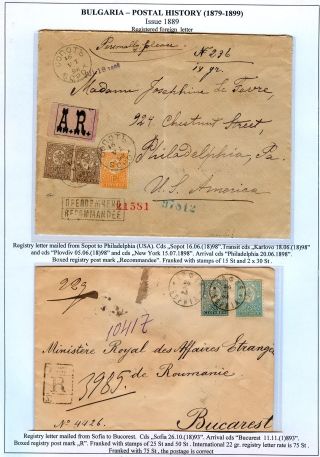 BULGARIA – POSTAL HISTORY (1879-1899)
Issue 1889
Registered foreign letter
Personally Please
№ 236
14 gr.
A.R.
Madame Josephine Le Fevre,
924 Chestnut Street,
Philadelphia, Pa.
U.S. America
RECOMMANDEE
Registry letter mailed from Sopot to Philadelphia (USA). Cds „Sopot 16.06.(18)98". Transit cds „Karlovo 18.06.(18)98"
and cds "Plovdiv 05.06.(18)98" and cds "New York 15.07.1898". Arrival cds "Philadelphia 20.06.1898".
Boxed registry post mark „Recommandee". Franked with stamps of 15 St and 2 x 30 St.
10417
Ministère Royal des Affaires Etrangères
de Roumanie
R
3985.
№ 4426.
Bucarest
Registry letter mailed from Sofia to Bucorest. Cds „Sofia 26.10.(18)93". Arrival cds "Bucarest 11.11.(1)893".
Boxed registry post mark „R". Franked with stamps of 25 St and 50 St . International 22 gr. registry letter rate is 75 St .
Franked with 75 St , the postage is correct